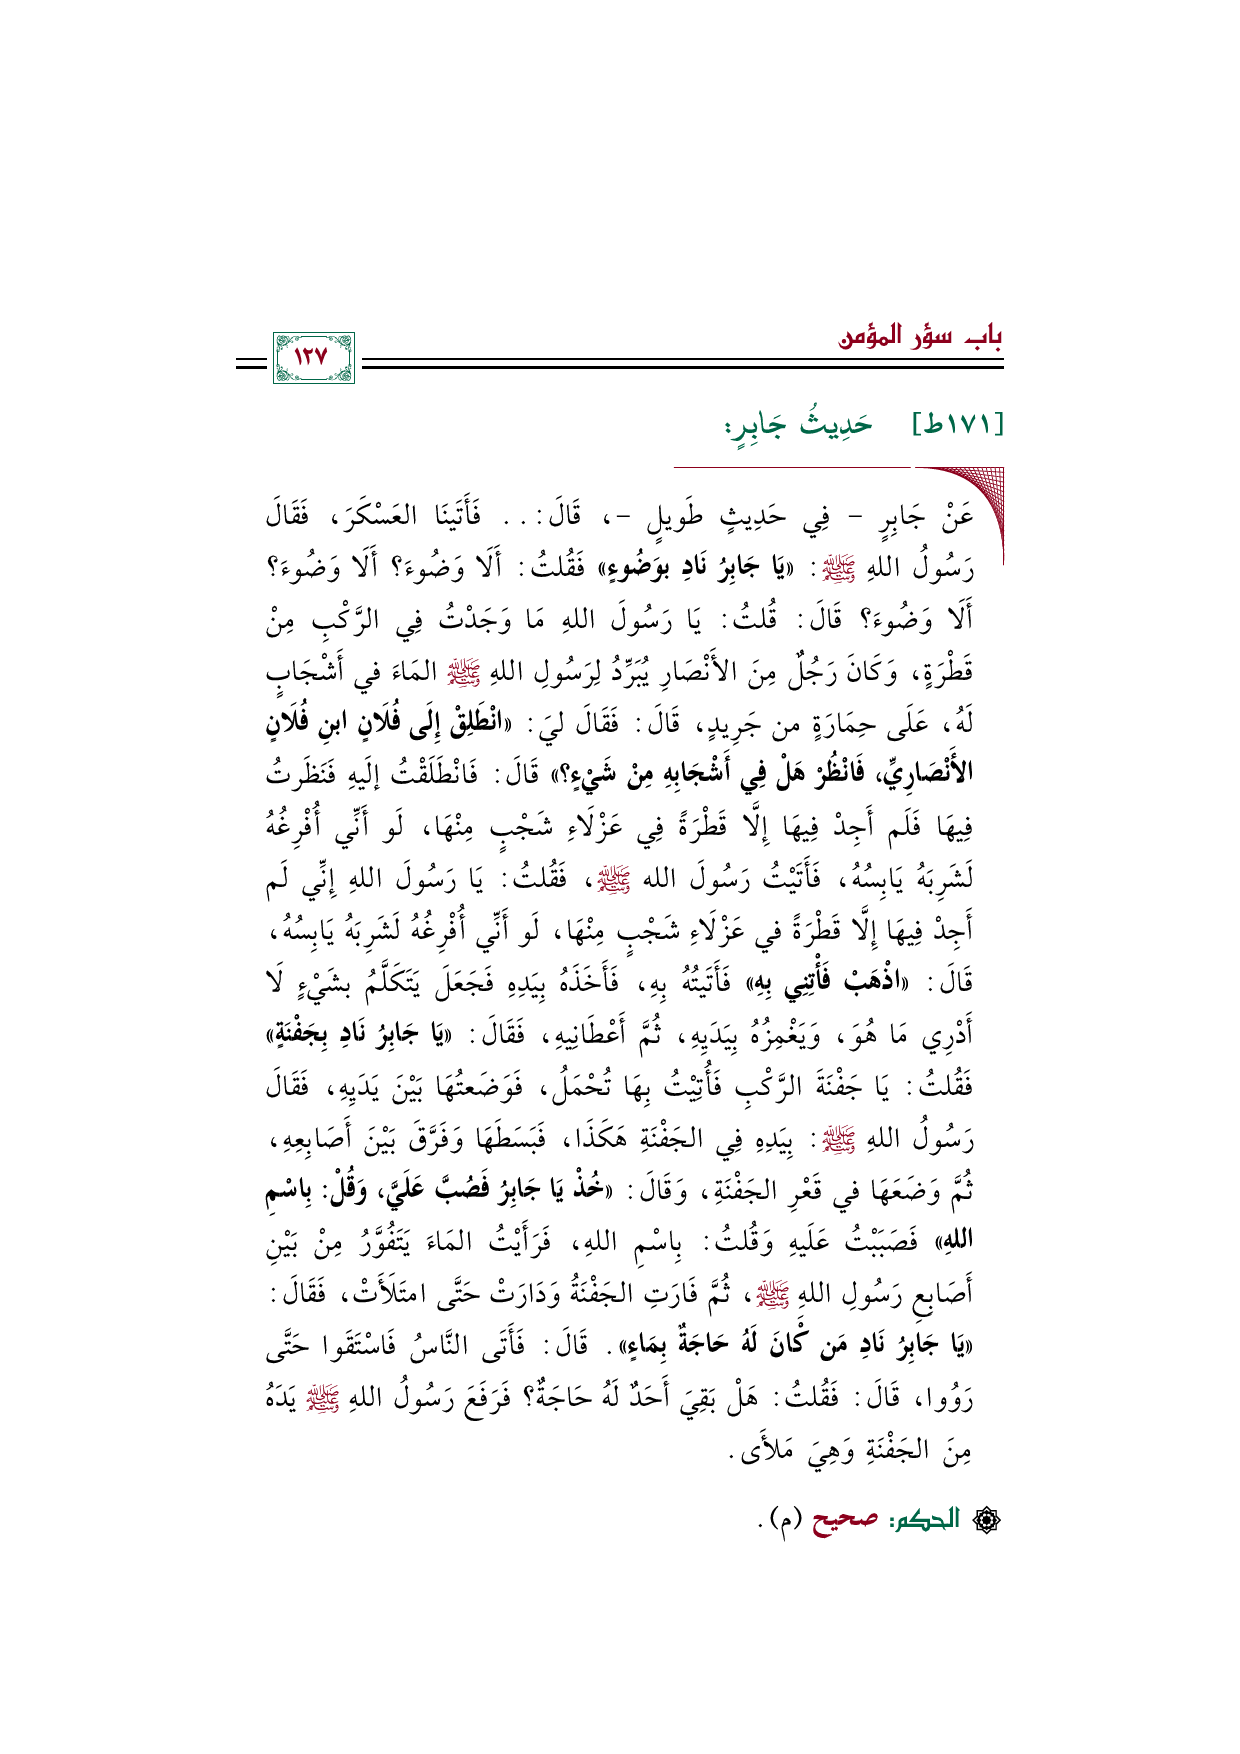 باب سؤر المؤمن
١٢٧
[١٧١ط] حَدِيثُ جَابِرٍ:
عَنْ جَابِرٍ - فِي حَدِيثٍ طَويلٍ -، قَالَ: .. فَأَتَينَا العَسْكَرَ، فَقَالَ
رَسُولُ اللهِ ﷺ: «يَا جَابِرُ نَادِ بوَضُوءٍ» فَقُلتُ: أَلَا وَضُوءَ؟ أَلَا وَضُوءَ؟
أَلَا وَضُوءَ؟ قَالَ: قُلتُ: يَا رَسُولَ اللهِ مَا وَجَدْتُ فِي الرَّكْبِ مِنْ
قَطْرَةٍ، وَكَانَ رَجُلٌ مِنَ الأَنْصَارِ يُبَرِّدُ لِرَسُولِ اللهِ ﷺ المَاءَ في أَشْجَابٍ
لَهُ، عَلَى حِمَارَةٍ من جَرِيدٍ، قَالَ: فَقَالَ ليَ: «انْطَلِقْ إِلَى فُلَانٍ ابنِ فُلَانٍ
الأَنْصَارِيِّ، فَانْظُرْ هَلْ فِي أَشْجَابِهِ مِنْ شَيْءٍ؟» قَالَ: فَانْطَلَقْتُ إلَيهِ فَنَظَرتُ
فِيهَا فَلَم أَجِدْ فِيهَا إِلَّا قَطْرَةً فِي عَزْلَاءِ شَجْبٍ مِنْهَا، لَو أَنِّي أُفْرِغُهُ
لَشَرِبَهُ يَابِسُهُ، فَأَتَيْتُ رَسُولَ الله ﷺ، فَقُلتُ: يَا رَسُولَ اللهِ إِنِّي لَم
أَجِدْ فِيهَا إِلَّا قَطْرَةً في عَزْلَاءِ شَجْبٍ مِنْهَا، لَو أَنِّي أُفْرِغُهُ لَشَرِبَهُ يَابِسُهُ،
قَالَ: «اذْهَبْ فَأْتِنِي بِهِ» فَأَتَيتُهُ بِهِ، فَأَخَذَهُ بِيَدِهِ فَجَعَلَ يَتَكَلَّمُ بشَيْءٍ لَا
أَدْرِي مَا هُوَ، وَيَغْمِزُهُ بِيَدَيِهِ، ثُمَّ أَعْطَانِيهِ، فَقَالَ: «يَا جَابِرُ نَادِ بِجَفْنَةٍ»
فَقُلتُ: يَا جَفْنَةَ الرَّكْبِ فَأُتِيْتُ بِهَا تُحْمَلُ، فَوَضَعتُهَا بَيْنَ يَدَيِهِ، فَقَالَ
رَسُولُ اللهِ ﷺ: بِيَدِهِ فِي الجَفْنَةِ هَكَذَا، فَبَسَطَهَا وَفَرَّقَ بَيْنَ أَصَابِعِهِ،
ثُمَّ وَضَعَهَا في قَعْرِ الجَفْنَةِ، وَقَالَ: «خُذْ يَا جَابِرُ فَصُبَّ عَلَيَّ، وَقُلْ: بِاسْمِ
اللهِ» فَصَبَبْتُ عَلَيهِ وَقُلتُ: بِاسْمِ اللهِ، فَرَأَيْتُ المَاءَ يَتَفُوَّرُ مِنْ بَيْنِ
أَصَابِعِ رَسُولِ اللهِ ﷺ، ثُمَّ فَارَتِ الجَفْنَةُ وَدَارَتْ حَتَّى امتَلَأَتْ، فَقَالَ:
«يَا جَابِرُ نَادِ مَن كَانَ لَهُ حَاجَةٌ بِمَاءٍ». قَالَ: فَأَتَى النَّاسُ فَاسْتَقَوا حَتَّى
رَوُوا، قَالَ: فَقُلتُ: هَلْ بَقِيَ أَحَدٌ لَهُ حَاجَةٌ؟ فَرَفَعَ رَسُولُ اللهِ ﷺ يَدَهُ
مِنَ الجَفْنَةِ وَهِيَ مَلأَى.
الحكم: صحيح (م).